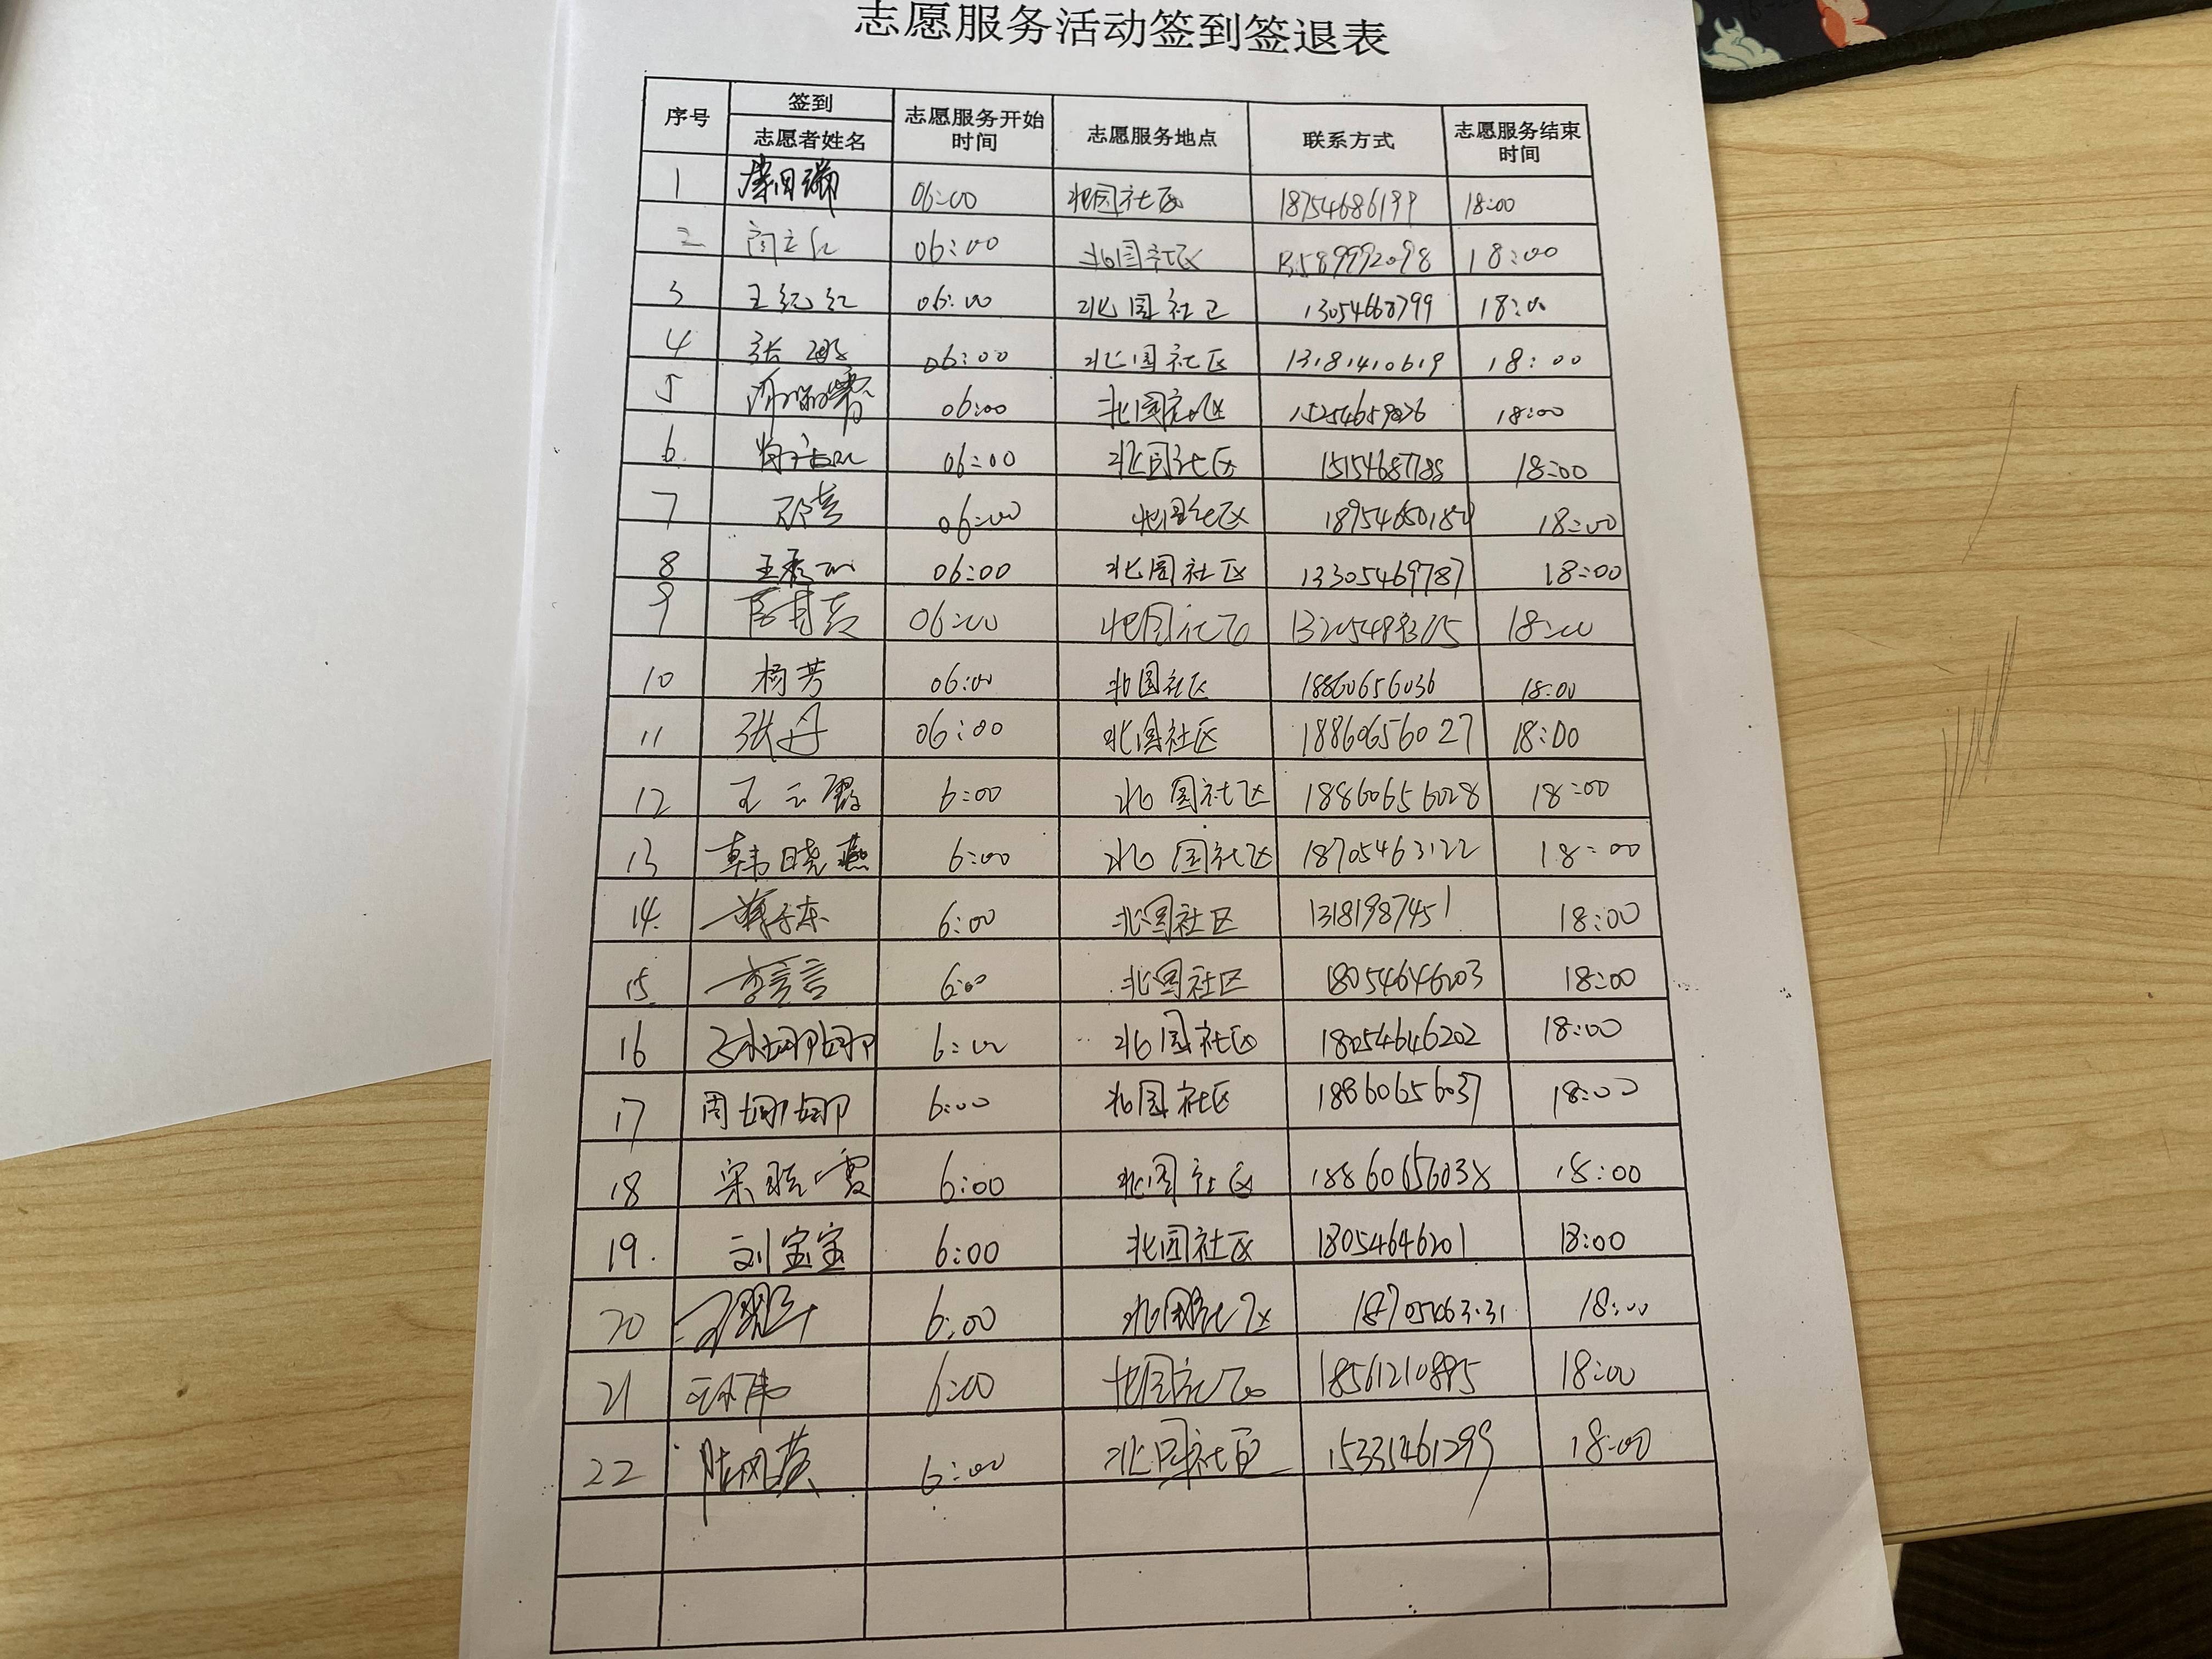 志愿服务活动签到签退表
序号 签到 志愿服务开始时间 志愿服务地点 联系方式 志愿服务结束时间
志愿者姓名
1 06:00 北国社区 18754686199 18:00
2 06:00 北国社区 13589992098 18:00
3 王纪红 06:00 北国社区 13054660799 18:00
4 张 06:00 北国社区 13181410619 18:00
5 06:00 北国社区 15254659026 18:00
6 06:00 北国社区 15154687788 18:00
7 06:00 北国社区 18:00
8 06:00 北国社区 13305469787 18:00
9 06:00 北国社区 18:00
10 杨芳 06:00 北国社区 18860656036 18:00
11 张丹 06:00 北国社区 18860656027 18:00
12 王云霞 6:00 北国社区 18860656028 18:00
13 韩晓燕 6:00 北国社区 18705463122 18:00
14 6:00 北国社区 13181987451 18:00
15 6:00 北国社区 18054646203 18:00
16 6:00 北国社区 18054646202 18:00
17 周娜娜 6:00 北国社区 18860656037 18:00
18 宋晓霞 6:00 北国社区 18860656038 18:00
19. 刘宝宝 6:00 北国社区 18054646201 18:00
20 6:00 北国社区 18:00
21 6:00 北国社区 18561210895 18:00
22 陆风英 6:00 北国社区 18:00